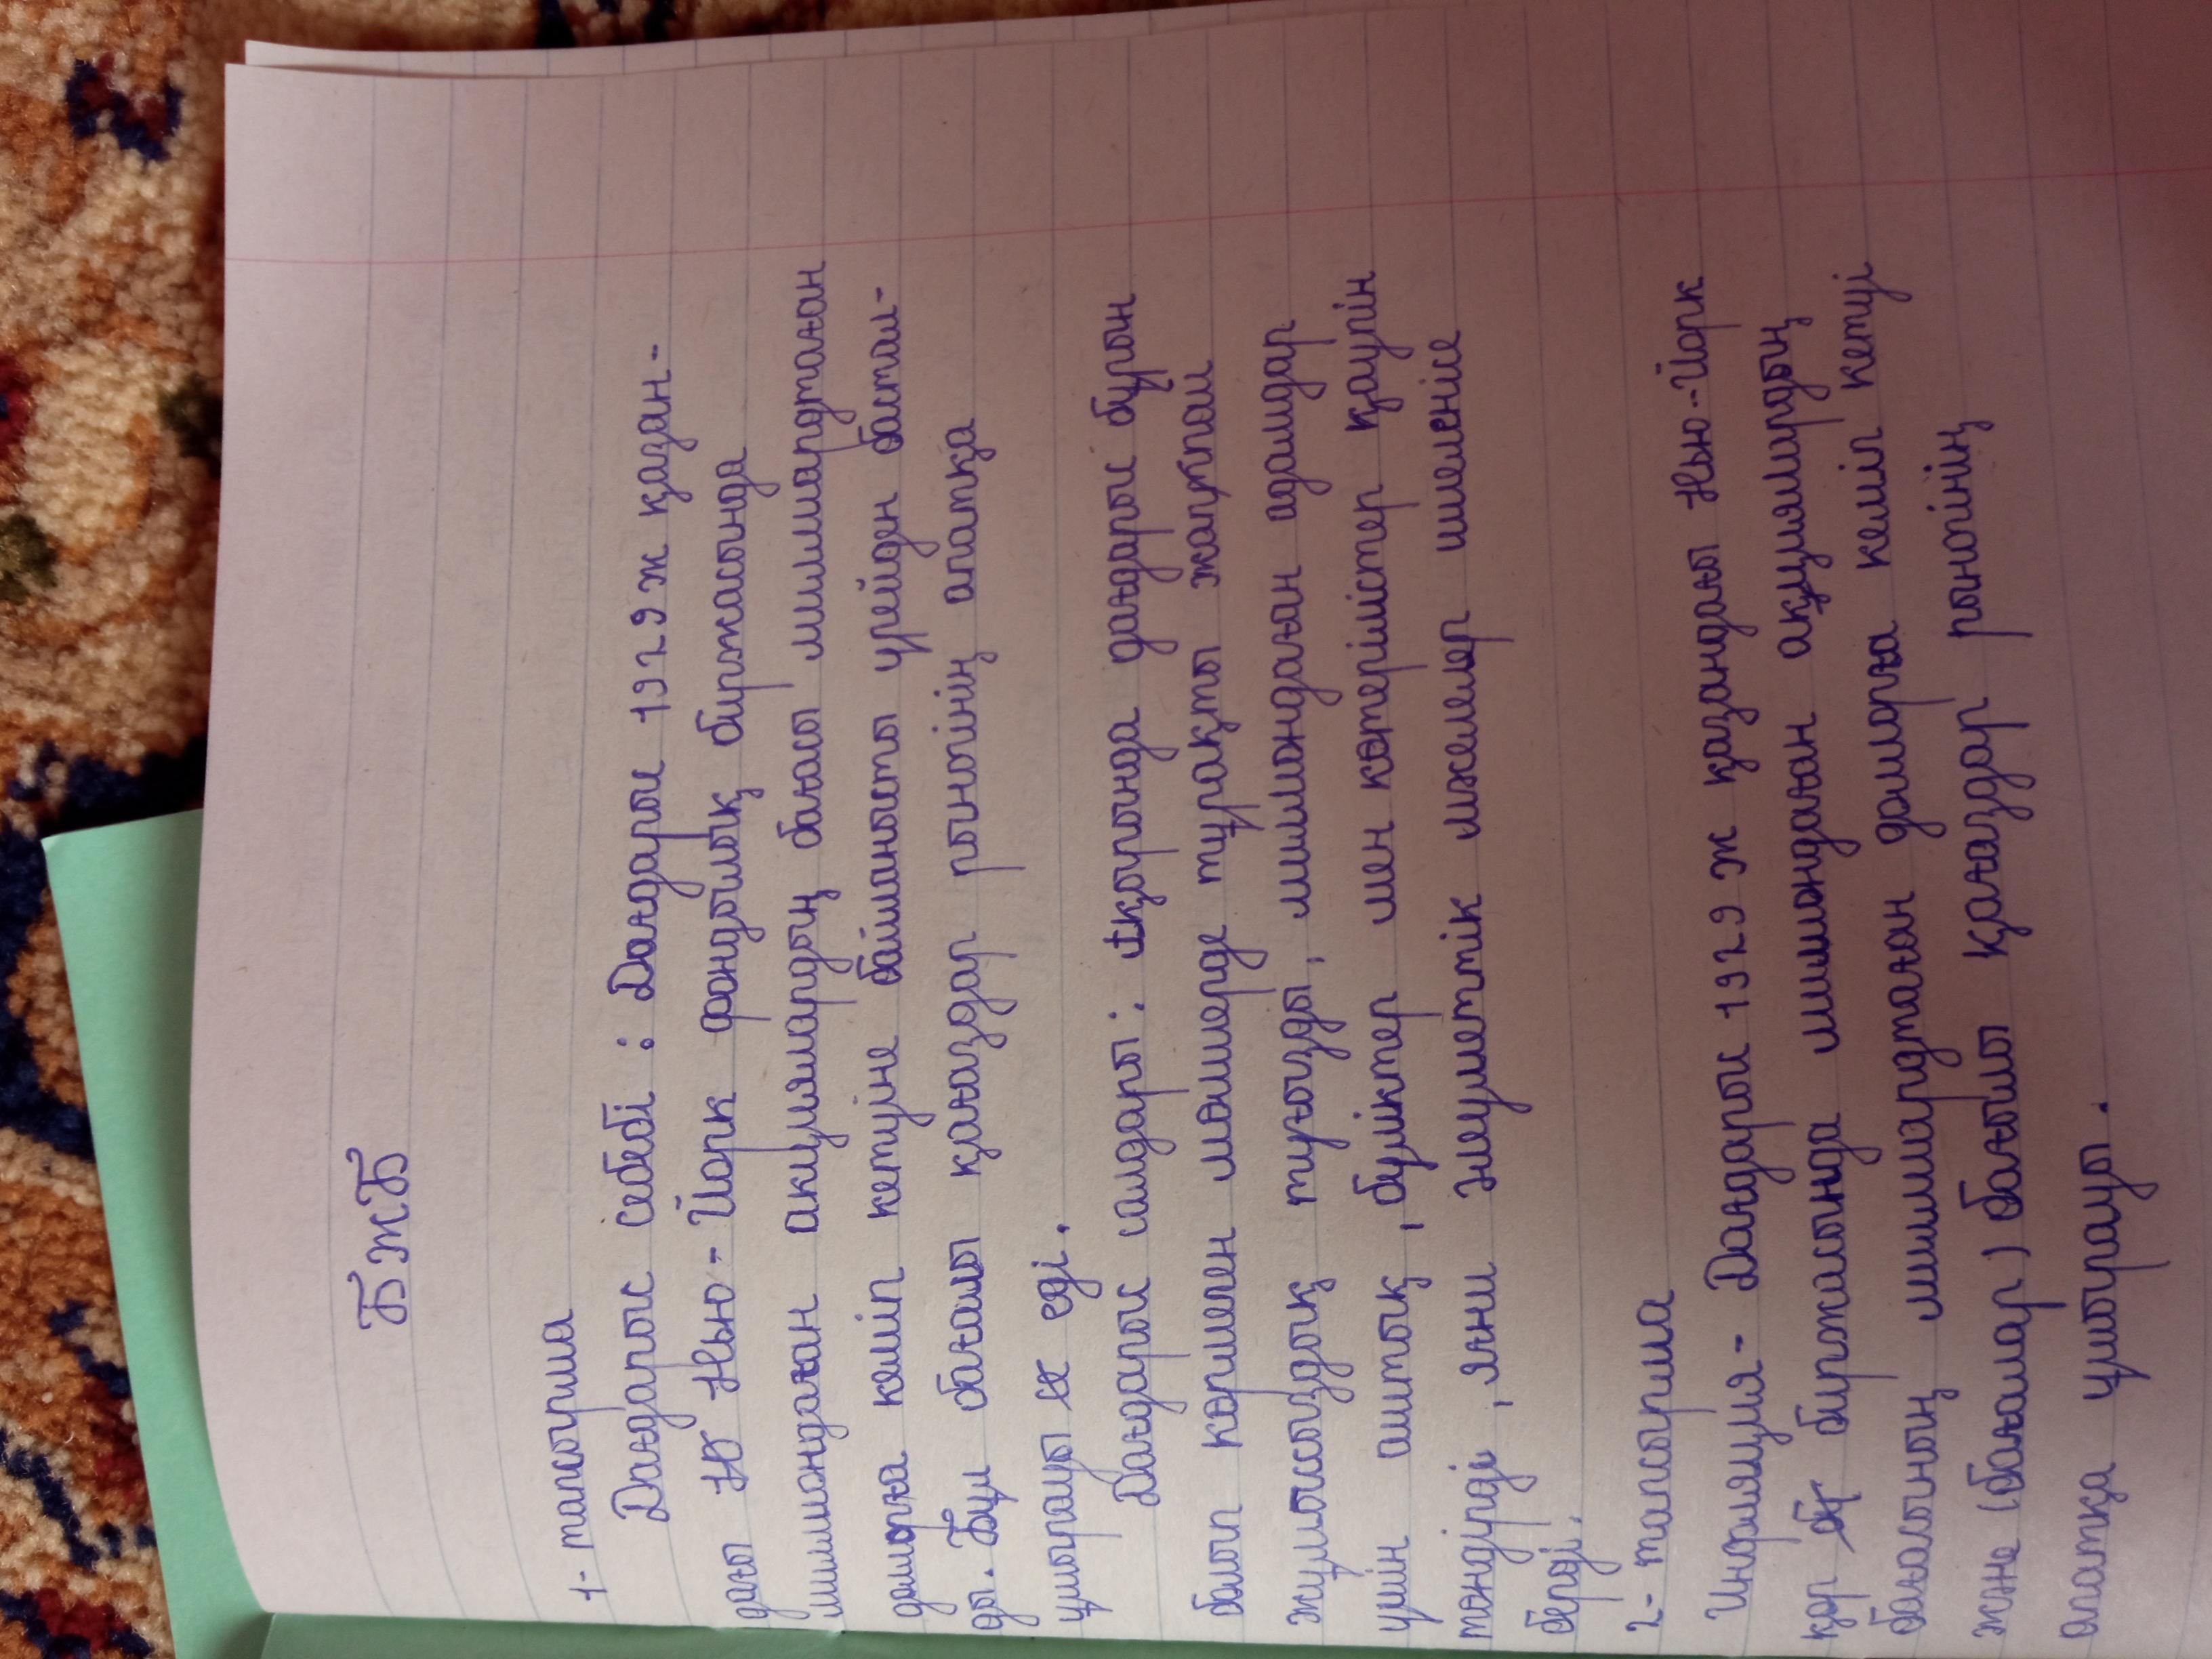 БЖБ
1-тапсырма
Дағдарыс себебі: Дағдарыс 1929 ж қазан-
дағы Нью-Йорк фондылық биржасында
миллиондаған акциялардың бағасы миллиардтаған
долларға келіп кетуіне байланысты үрейден бастал-
ды. Бұл бағалы қағаздар рыногінің апатқа
ұшырауы еді.
Дағдарыс салдары: қорында дағдарыс бұрын
болып көрмеген мөлшерде тұрақты жаппай
жұмыссыздық туғызды, миллиондаған адамдар
үшін аштық, бүліктер мен көтерілістер қаупін
төндірді, яғни әлеуметтік мәселелер шиеленісе
берді.
2-тапсырма
Инфляция- Дағдарыс 1929 ж қазандағы Нью-Йорк
қор биржасында миллиондаған акциялардың
бағасының миллиардтаған долларға келіп кетуі
және (бағалар) бағалы қағаздар рыногінің
апатқа ұшырауы.